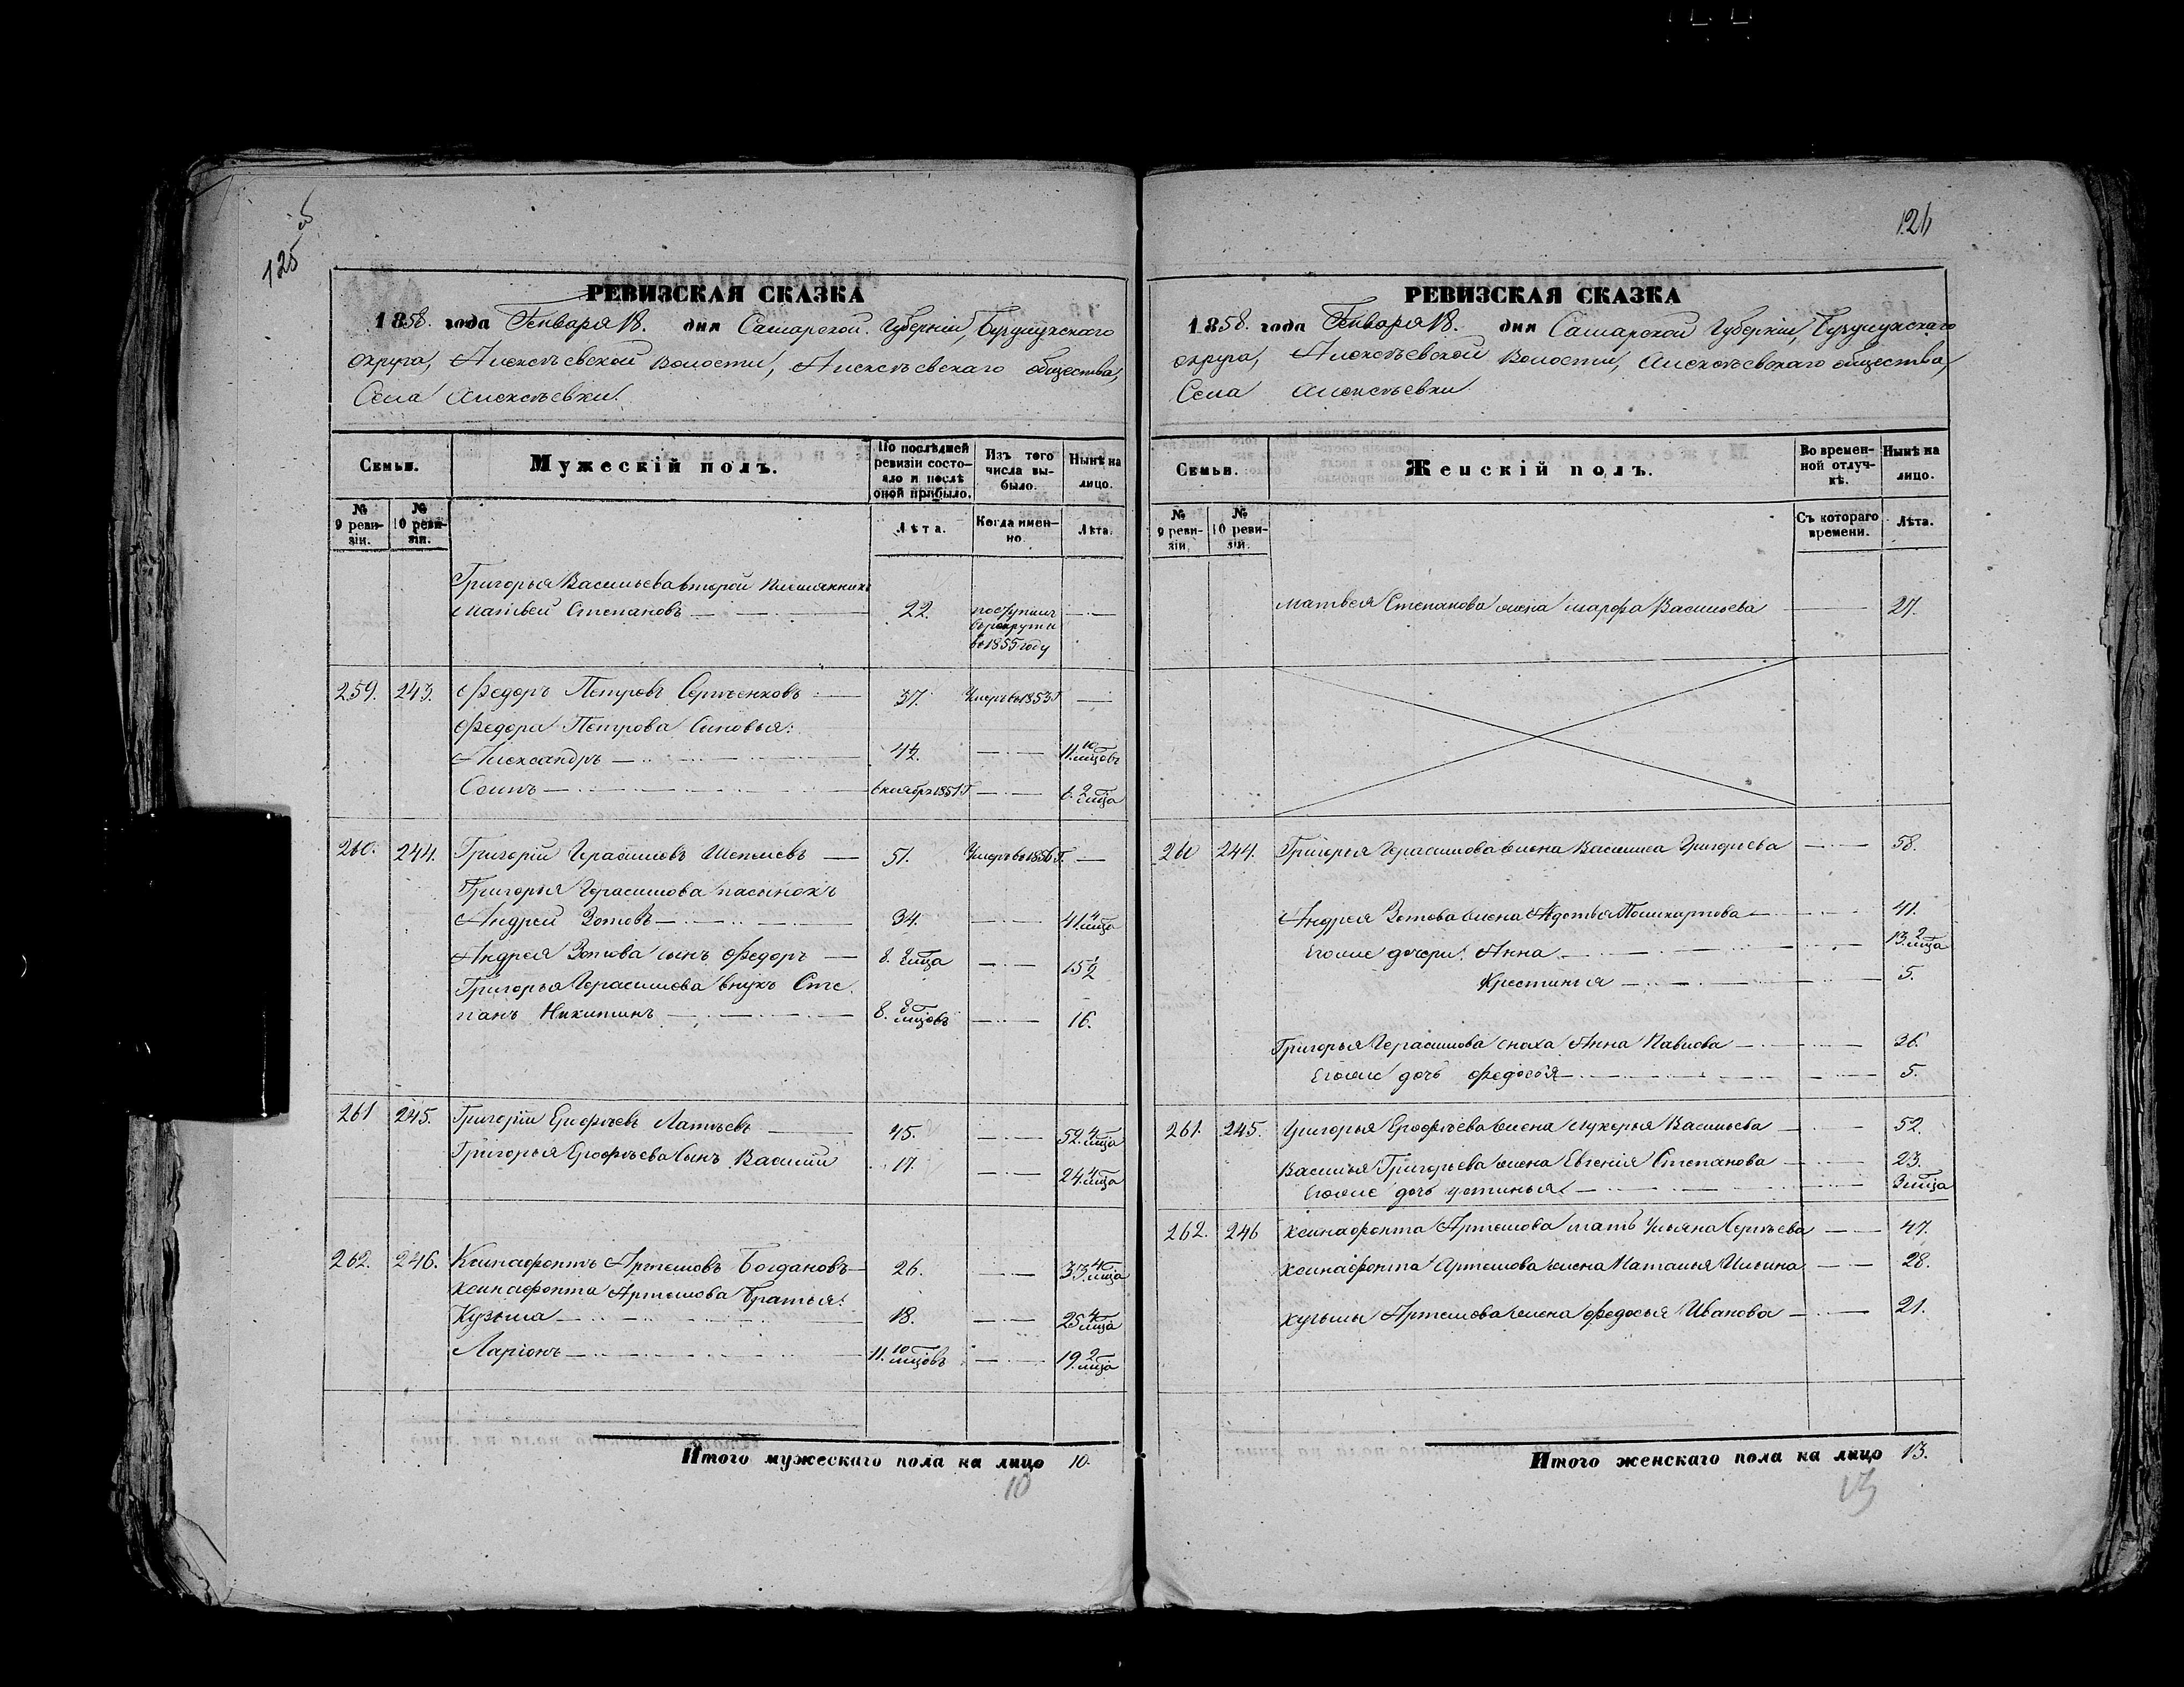 125
РЕВИЗСКАЯ СКАЗКА
1858. года Генваря 18. дня Самарской Губернiи, Бузулукскаго
округа, Алексѣевской Волости, Алексѣевскаго общества,
Села Алексѣевки.
Семьи.
Мужескiй полъ.
По послѣдней ревизiи состояло и послѣ оной прибыло.
Изъ того числа выбыло.
Нынѣ на лицо.
№ 9 ревизiи.
№ 10 ревизiи.
Лѣта.
Когда именно.
Лѣта.
Григорья Васильева второй племянникъ
Матвей Степановъ 22. поступилъ в рекруты въ 1855 году
259. 243. Федоръ Петровъ Сергѣенковъ 37. Умеръ въ 1853 г.
Федора Петрова Сыновья:
Александръ 4 1/2. 11. 10 мцовъ
Осипъ 1851 г. 6. 2 мца
260. 244. Григорiй Герасимовъ Шепелевъ 51. Умеръ въ 1856 г.
Григорья Герасимова пасынокъ
Андрей Зотовъ 34. 41. 4 мца
Андрея Зотова сынъ Федоръ 8. 2 мца 15 1/2
Григорья Герасимова внукъ Сте
панъ Никитинъ 8. 8 мцовъ 16.
261 245. Григорiй Ерофѣевъ Лаптѣевъ 45. 52. 4 мца
Григорья Ерофѣева Сынъ Василiй 17. 24. 4 мца
262. 246. Ксинафонтъ Артемовъ Богдановъ 26. 33. 4 мца
Ксинафонта Артемова Братья:
Кузьма 18. 25. 4 мца
Ларiонъ 11. 10 мцовъ 19. 2 мца
Итого мужескаго пола на лицо 10.
10
126
РЕВИЗСКАЯ СКАЗКА
1858. года Генваря 18. дня Самарской Губернiи, Бузулукскаго
округа, Алексѣевской Волости, Алексѣевскаго общества,
Села Алексѣевки
Семьи.
Женскiй полъ.
Во временной отлучкѣ.
Нынѣ на лицо.
№ 9 ревизiи.
№ 10 ревизiи.
Съ котораго времени.
Лѣта.
Матвея Степанова жена Марфа Васильева 27.
260 244. Григорья Герасимова жена Василиса Григорьева 58.
Андрея Зотова жена Авдотья Поликарпова 41.
Его же дочери: Анна 13. 2 мца
Крестинья 5.
Григорья Герасимова сноха Анна Павлова 36.
Его же дочь Федосья 5.
261. 245. Григорья Ерофѣева жена Лукерья Васильева 52.
Василья Григорьева жена Евгенiя Степанова 23.
Его же дочь Устинья 3 мца
262. 246 Ксинафонта Артемова мать Ульяна Сергѣева 47.
Ксинафонта Артемова жена Наталья Ильина 28.
Кузьмы Артемова жена Федосья Иванова 21.
Итого женскаго пола на лицо 13.
13